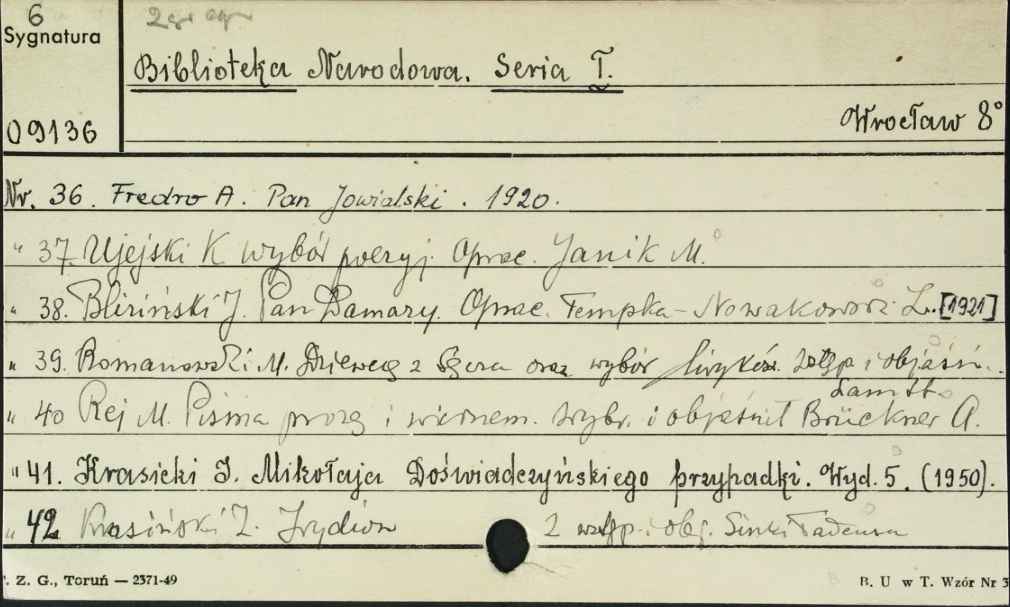 6
Sygnatura
Biblioteka Narodowa. Seria I.
09136
Wrocław 8°
Nr. 36. Fredro A. Pan Jowialski. 1920.
" 37. Ujejski K wybór poezyj. Oprac. Janik M.
" 38. Bliziński J. Pan Damazy. Oprac. Tempka-Nowakowski Z. [1921]
" 39. Romanowski M. Dziewczę z Sącza oraz wybór liryków. wstęp i objaśn.
Lam St.
" 40 Rej M. Pisma prozą i wierszem. Wybr. i objaśnił Brückner A.
" 41. Krasicki I. Mikołaja Doświadczyńskiego przypadki. Wyd. 5. (1950).
" 42 Krasiński Z. Irydion z wstęp. i obj. Sinki Tadeusza
. Z. G., Toruń — 2371-49
B. U w T. Wzór Nr 3